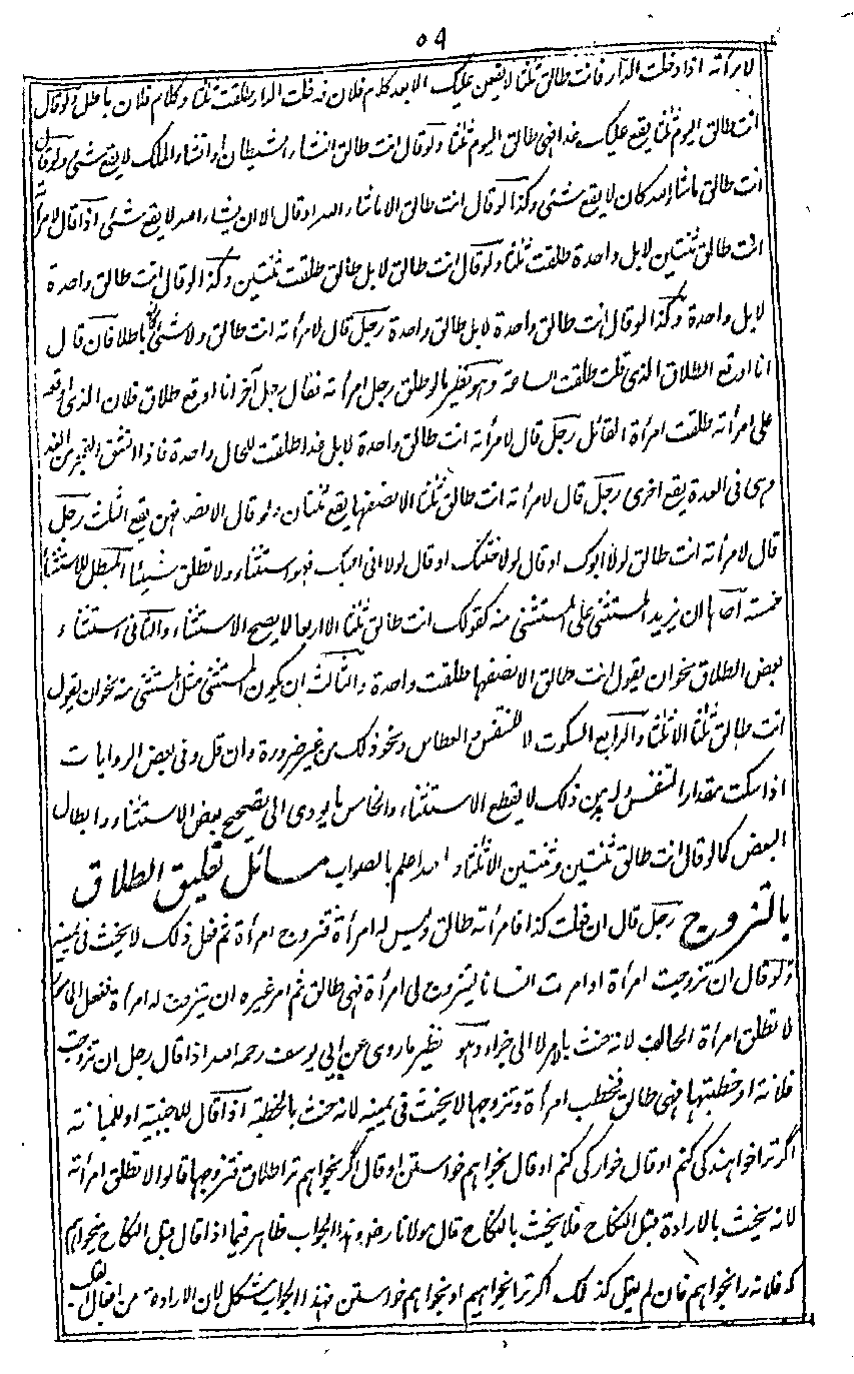 ٥٩
لامرأته اذا دخلت الدار فانت طالق ثلثا لا يقعن عليك الا بعد كلام فلان فدخلت الدار طلقت ثلثا وكلام فلان باطل ولو قال
انت طالق اليوم ثلثا يقع عليك غدا فهى طالق اليوم ثلثا ولو قال انت طالق ان شاء الشيطان او ان شاء الملك لا يقع شئ ولو قال
انت طالق ما شاء الله كان لا يقع شئ وكذا لو قال انت طالق الا ما شاء الله او قال الا ان يشاء الله لا يقع شئ اذا قال لامرأته
انت طالق ثنتين لا بل واحدة طلقت ثلثا ولو قال انت طالق لا بل طالق طلقت ثنتين وكذا لو قال انت طالق واحدة
لا بل واحدة وكذا لو قال انت طالق واحدة لا بل طالق واحدة رجل قال لامرأته انت طالق ولا شئ باطلاق فان قال
انا اوقع الطلاق الذى قلت طلقت الساعة وهو نظير ما لو طلق رجل امرأته فقال رجل آخر انا اوقع طلاق فلان الذى اوقعه
على امرأته طلقت امرأة القائل رجل قال لامرأته انت طالق واحدة لا بل غدا طلقت للحال واحدة فاذا انشق الفجر من الغد
وهى فى العدة يقع اخرى رجل قال لامرأته انت طالق ثلثا الا نصفها يقع ثنتان ولو قال الا نصفهن يقع الثلث رجل
قال لامرأته انت طالق لولا ابوك او قال لولا حسنك او قال لولا انى احبك فهو استثناء ولا تطلق شيئا المبطل للاستثناء
خمسة احدها ان يزيد المستثنى على المستثنى منه كقولك انت طالق ثلثا الا اربعا لا يصح الاستثناء والثانى استثناء
بعض الطلاق نحو ان يقول انت طالق الا نصفها طلقت واحدة والثالث ان يكون المستثنى مثل المستثنى منه نحو ان يقول
انت طالق ثلثا الا ثلثا والرابع السكوت لا للتنفس والعطاس ونحو ذلك من غير ضرورة وان قل وفى بعض الروايات
اذا سكت مقدار التنفس او بين ذلك لا يقطع الاستثناء والخامس ما يودى الى تصحيح بعض الاستثناء وابطال
البعض كما لو قال انت طالق ثنتين وثنتين الا ثلثا والله اعلم بالصواب مسائل تعليق الطلاق
بالتزوج رجل قال ان فعلت كذا فامرأته طالق وليس له امرأة فتزوج امرأة ثم فعل ذلك لا يحنث فى يمينه
ولو قال ان تزوجت امرأة او امرت انسانا ليتزوج لى امرأة فهى طالق ثم امر غيره ان يتزوج له امرأة ففعل المامور
لا تطلق امرأة الحالف لانه حنث بالامر لا الى جزاء وهو نظير ما روى عن ابى يوسف رحمه الله اذا قال رجل ان تزوجت
فلانة او خطبتها فهى طالق فخطب امرأة وتزوجها لا يحنث فى يمينه لانه حنث بالخطبة اذا قال للاجنبية او للمبانة
اگر ترا خواهندگى كنم او قال خوارگى كنم او قال بخواهم خواستن او قال اگر بخواهم ترا طلاق فتزوجها قالوا لا تطلق امرأته
لانه يحنث بالارادة قبل النكاح فلا يحنث بالنكاح قال مولانا رضه وهذا الجواب ظاهر فيما اذا قال قبل النكاح ميخواهم
كه فلانه را بخواهم فان لم يقل كذلك اگر ترا بخواهيم او بخواهم خواستن فهذا الجواب مشكل لان الارادة من افعال القلب